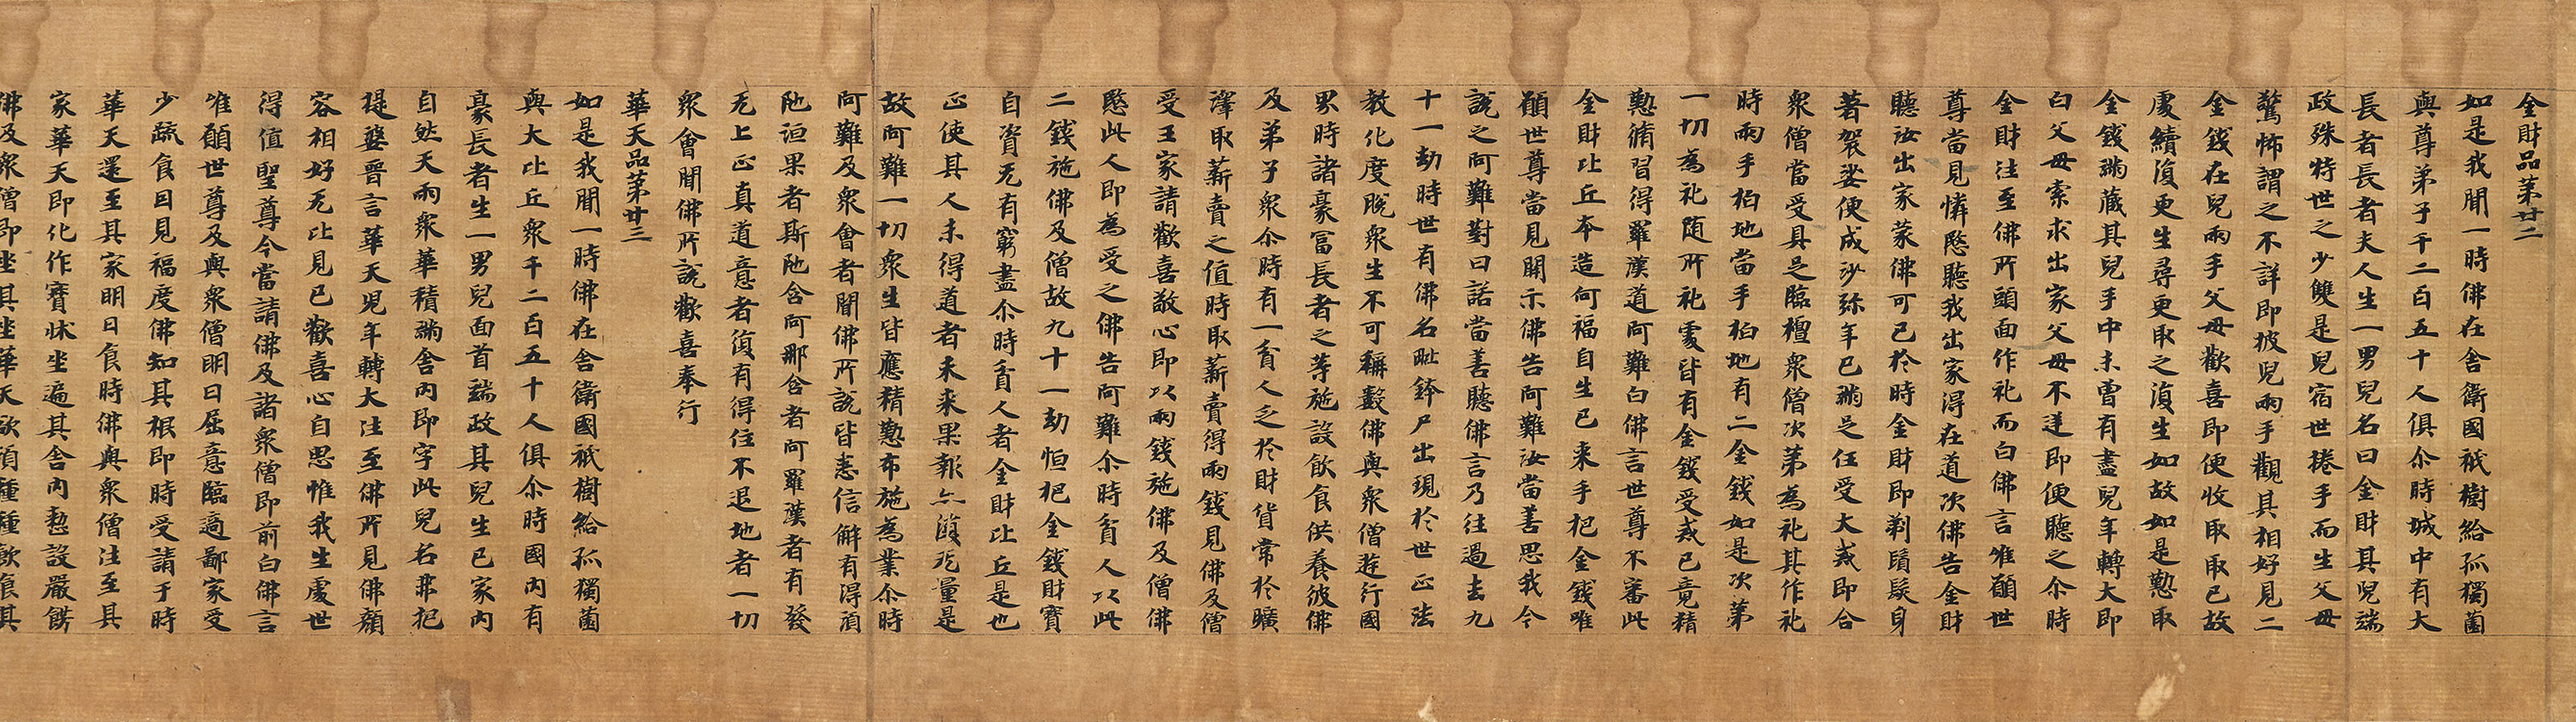 金財品第廿二
如是我聞一時佛在舍衛國祇樹給孤獨薗
與尊弟子千二百五十人俱尒時城中有大
長者長者夫人生一男兒名曰金財其兒端
政殊特世之少雙是兒宿世捲手而生父母
驚怖謂之不詳即披兒兩手觀其相好見二
金錢在兒兩手父母歡喜即便收取取已故
處續復更生尋更取之復生如故如是懃取
金錢滿藏其兒手中未曾有盡兒年轉大即
白父母索求出家父母不逆即便聽之尒時
金財往至佛所頭面作礼而白佛言唯願世
尊當見憐愍聽我出家得在道次佛告金財
聽汝出家蒙佛可已於時金財即剃鬚髮身
著袈裟便成沙弥年已滿足任受大戒即合
衆僧當受具足臨檀衆僧次第為礼其作礼
時兩手拍地當手拍地有二金錢如是次第
一切為礼随所礼處皆有金錢受戒已竟精
懃脩習得羅漢道阿難白佛言世尊不審此
金財比丘本造何福自生已来手把金錢唯
願世尊當見開示佛告阿難汝當善思我今
說之阿難對曰諾當善聽佛言乃往過去九
十一劫時世有佛名毗鉢尸出現於世正法
教化度脫衆生不可稱數佛與衆僧遊行國
界時諸豪富長者之等施設飲食供養彼佛
及弟子衆尒時有一貧人乏於財貨常於曠
澤取薪賣之值時取薪賣得兩錢見佛及僧
受王家請歡喜敬心即以兩錢施佛及僧佛
愍此人即為受之佛告阿難尒時貧人以此
二錢施佛及僧故九十一劫恒把金錢財寶
自資无有窮盡尒時貧人者金財比丘是也
正使其人未得道者未来果報亦復无量是
故阿難一切衆生皆應精懃布施為業尒時
阿難及衆會者聞佛所說皆悉信解有得湏
陁洹果者斯陁含阿那含者阿羅漢者有發
无上正真道意者復有得住不退地者一切
衆會聞佛所說歡喜奉行
華天品第廿三
如是我聞一時佛在舍衛國祇樹給孤獨薗
與大比丘衆千二百五十人俱尒時國內有
豪長者生一男兒面首端政其兒生已家內
自然天雨衆華積滿舍內即字此兒名弗把
提婆晋言華天兒年轉大往至佛所見佛顏
容相好无比見已歡喜心自思惟我生處世
得值聖尊今當請佛及諸衆僧即前白佛言
唯願世尊及與衆僧明日屈意臨適鄙家受
少蔬食因見福度佛知其根即時受請于時
華天還至其家明日食時佛與衆僧往至其
家華天即化作寶牀坐遍其舍內懃設嚴餝
佛及衆僧即坐其坐華天欲湏種種飲食其